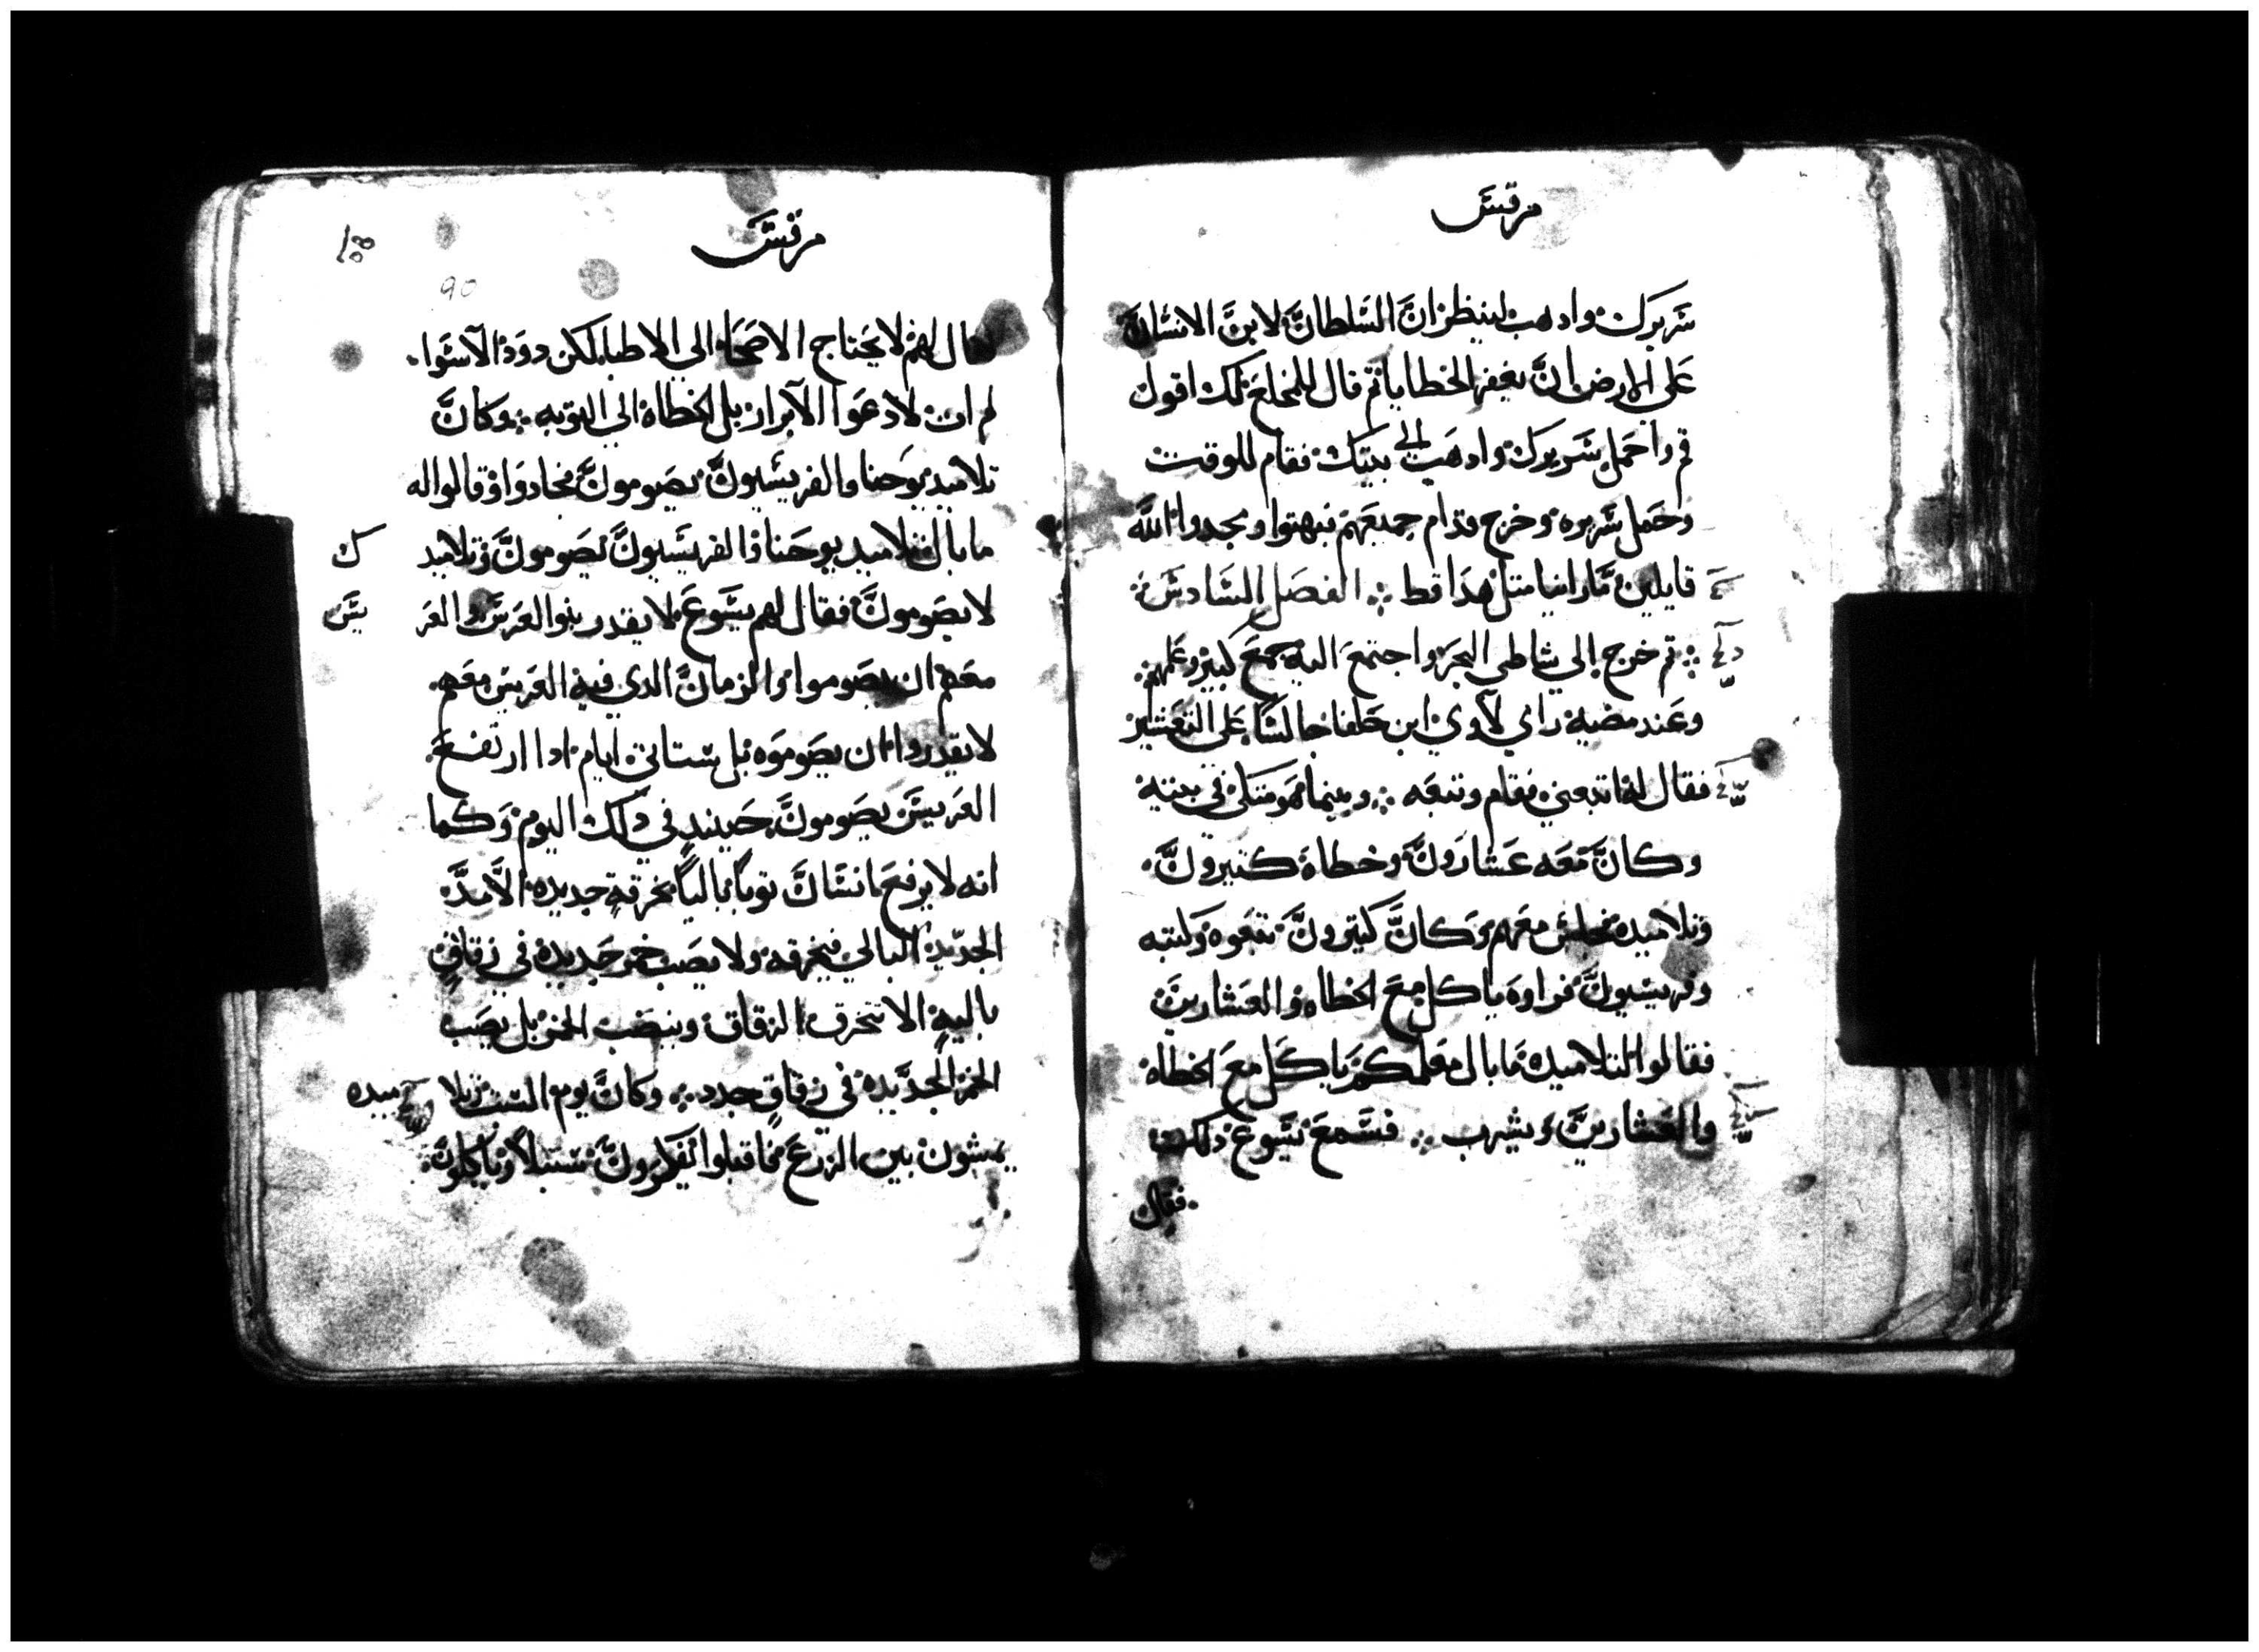 مرقس
سريرك واذهب لينظر ان السلطان لابن الانسان
على الارض ان يغفر الخطايا ثم قال للمخلع لك اقول
قم واحمل سريرك واذهب الى بيتك فقام للوقت
وحمل سريره وخرج قدام جميعهم فبهتوا ومجدوا الله
قايلين ما راينا متل هدا قط ؞ الفصل السادس
؞ تم خرج الي شاطي البحر واجتمع اليه جمع كبير وعلمهم
وعند مضيه راي لاوي ابن حلفا جالسا على التعشير
فقال له اتبعني فقام وتبعه ؞ وبينما هو متكي في بيته
وكان معه عشارون وخطاة كتيرون
وتلاميده معهم وكان كتيرون تبعوه وكتبه
وفريسيون فراوه ياكل مع الخطاه والعشارين
فقالوا لتلاميده ما بال معلمكم ياكل مع الخطاه
والعشارين ويشرب ؞ فسمع يسوع دلك
فقال
مرقس
90
فقال لهم لا يحتاج الاصحا الي الاطبا لكن دود الاسوا
لم ات لادعوا الابرار بل الخطاة الي التوبه ؞ وكان
تلاميد يوحنا والفريسيون يصومون فجاو وقالوا له
ما بال تلاميد يوحنا والفريسيون يصومون وتلاميد ك
لا يصومون فقال لهم يسوع لا يقدر بنوا العرس والعر يس
معهم ان يصوموا والزمان الدي فيه العريس معهم
لا يقدروا ان يصوموه بل ستاتي ايام ادا ارتفع
العريس يصومون حينيد في دلك اليوم وكما
انه لا يرفع انسان توبا باليا بخرقة جديده الا مد
الجديد البالي فيخرقه ولا يصب خمر جديده في زقاق
باليه الا تنخرق الزقاق وينصب الخمر بل يصب
الخمر الجديده في زقاق جدد ؞ وكان يوم السبت وتلا ميده
يمشون بين الزرع فاقبلوا يفركون سنبلا وياكلون